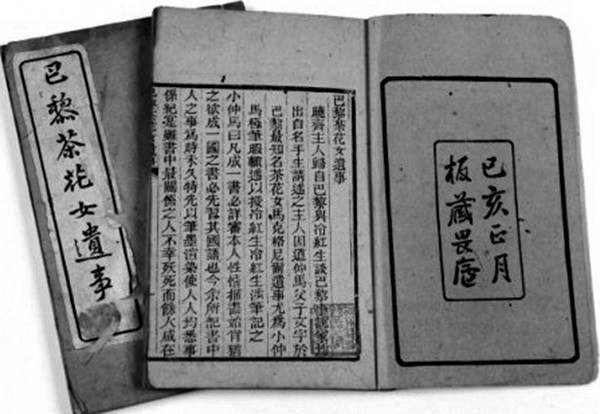 巴黎茶花女遺事
己亥正月
板藏畏廬
巴黎茶花女遺事
曉齋主人歸自巴黎與冷紅生談巴黎小說家均
出自名手生請述之主人因道仲馬父子文字於
巴黎最知名茶花女馬克格尼爾遺事尤爲小仲
馬極筆暇輒述以授冷紅生冷紅生涉筆記之
小仲馬曰凡成一書必詳審本人性情描畫始肖猶
之欲成一國之書必先習其國語也今余所記書中
人之事爲時未久特先以筆墨渲染使人人均悉事
係紀實雖書中最關係之人不幸夭死而餘人咸在